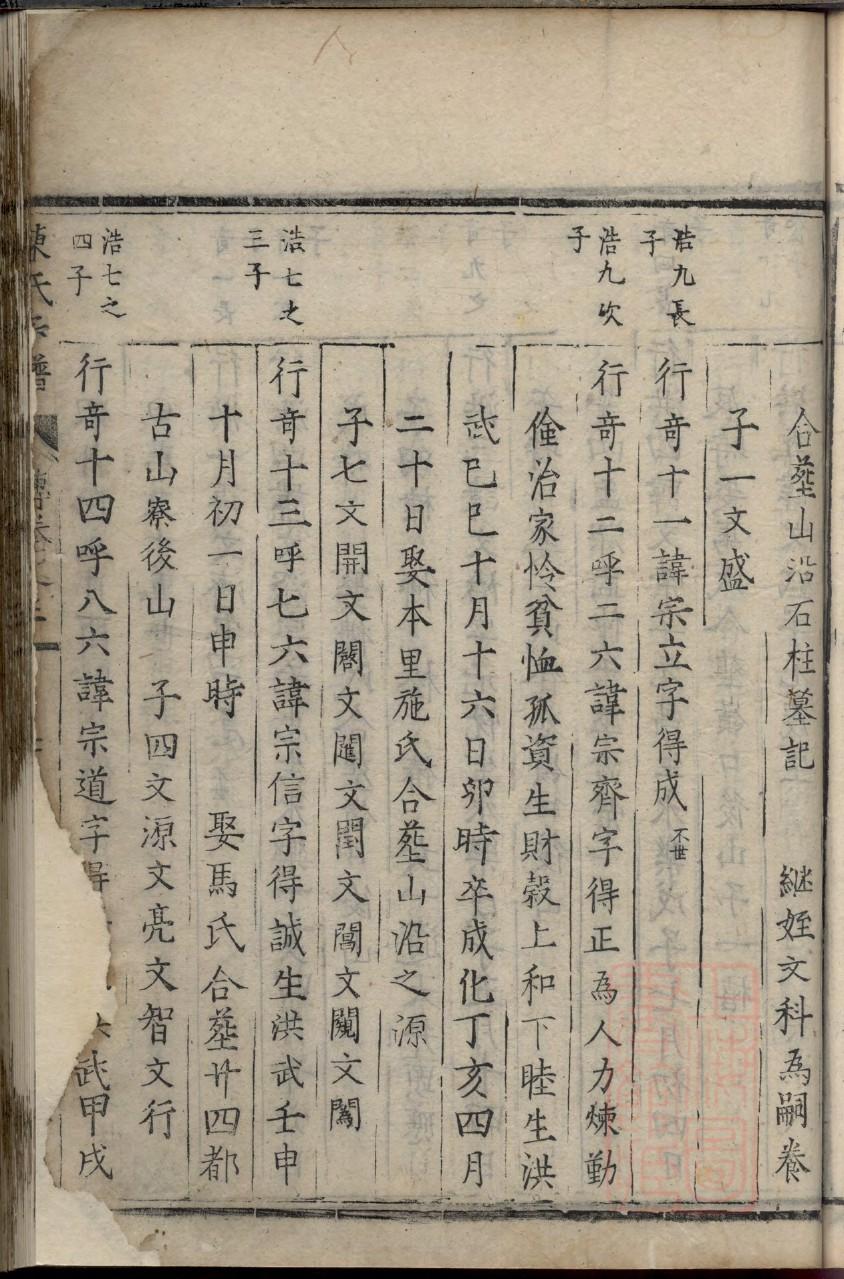 合塟山沿石柱墓記 継姪文科為嗣養
子一文盛
浩九長子
行竒十一諱宗立字得成不世
浩九次子
行竒十二呼二六諱宗齊字得正為人力煉勤
俭治家怜貧恤孤資生財穀上和下睦生洪
武己巳十月十六日卯時卒成化丁亥四月
二十日娶本里施氏合塟山沿之源
子七文開文閣文闓文閏文闖文闌文闊
浩七之三子
行竒十三呼七六諱宗信字得誠生洪武壬申
十月初一日申時 娶馬氏合塟廿四都
古山寮後山 子四文源文亮文智文行
浩七之四子
行竒十四呼八六諱宗道字得武甲戌
陳氏宗譜